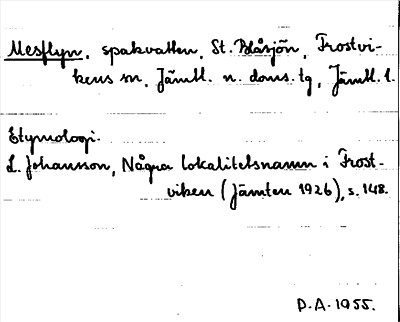 Mesflyn, spakvatten, St. Blåsjön, Frostvi-
kens sn, Jämtl. n. doms. tg, Jämtl. l.
Etymologi.
L. Johansson, Några lokalitetsnamn i Frost-
viken (Jämten 1926), s. 148.
D.A. 1955.